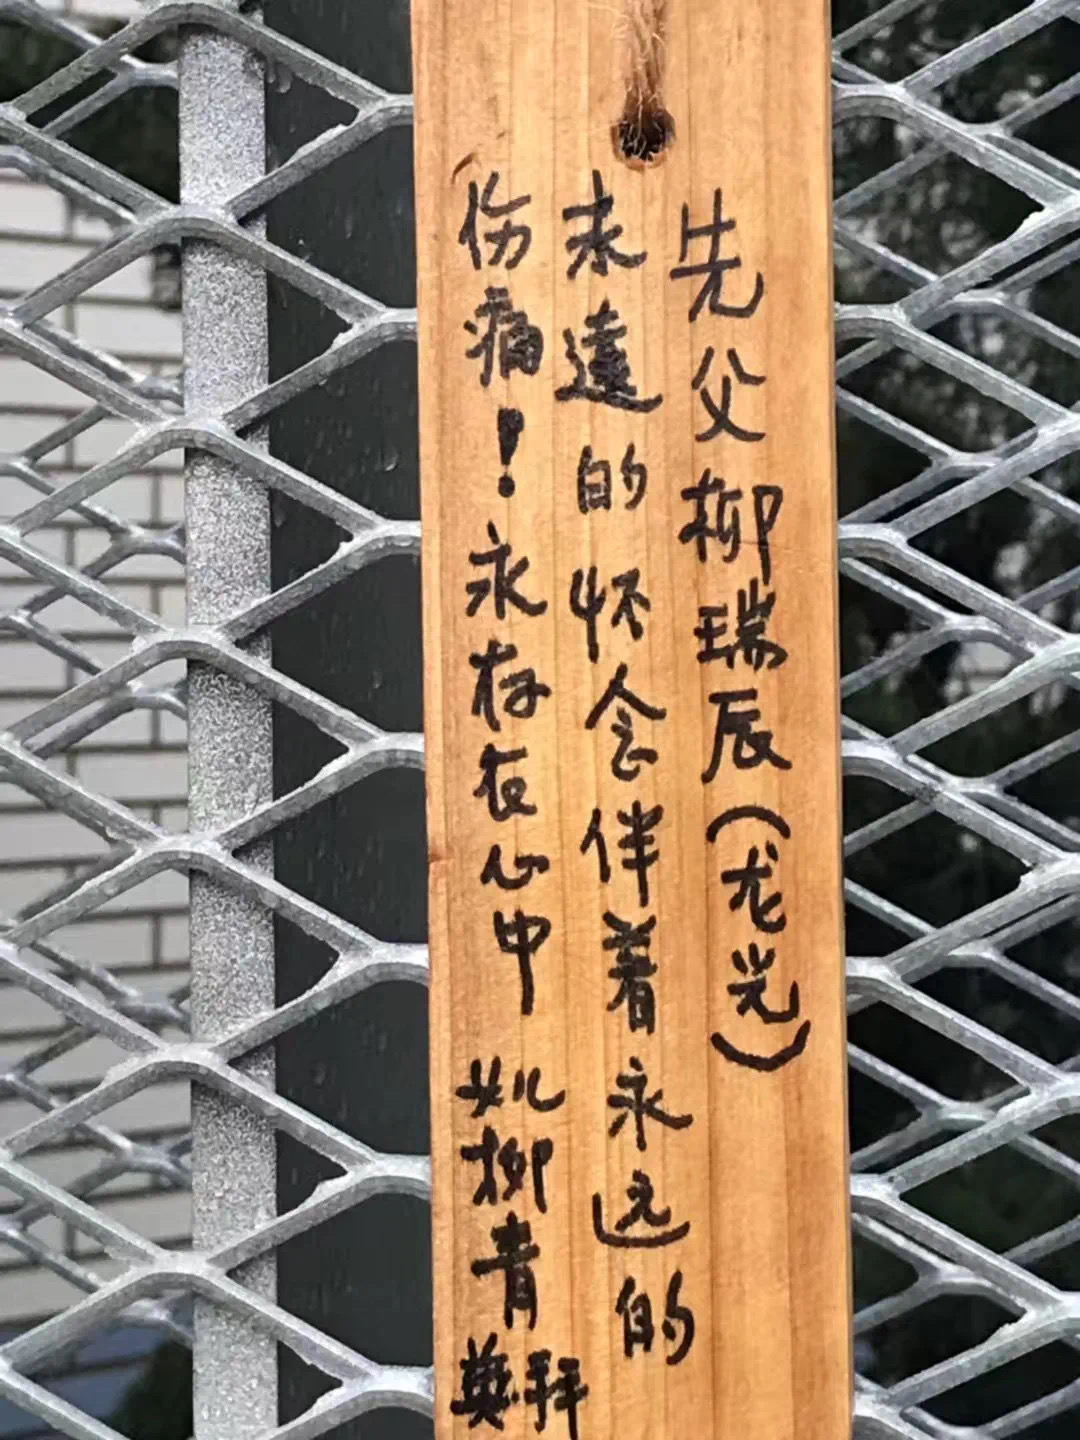 先父柳瑞辰(龙光)
未遠的怀念伴着永远的
伤痛！永存在心中 女儿柳青英拜